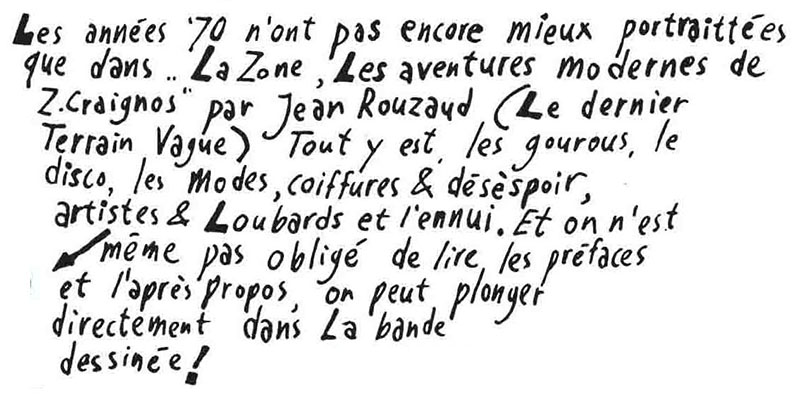 Les années '70 n'ont pas encore mieux portraittées
que dans „ La Zone, Les aventures modernes de
Z. Craignos" par Jean Rouzaud (Le dernier
Terrain Vague) Tout y est, les gourous, le
disco, les modes, coiffures & désèspoir,
artistes & Loubards et l'ennui. Et on n'est
même pas obligé de lire les préfaces
et l'après propos, on peut plonger
directement dans La bande
dessinée!